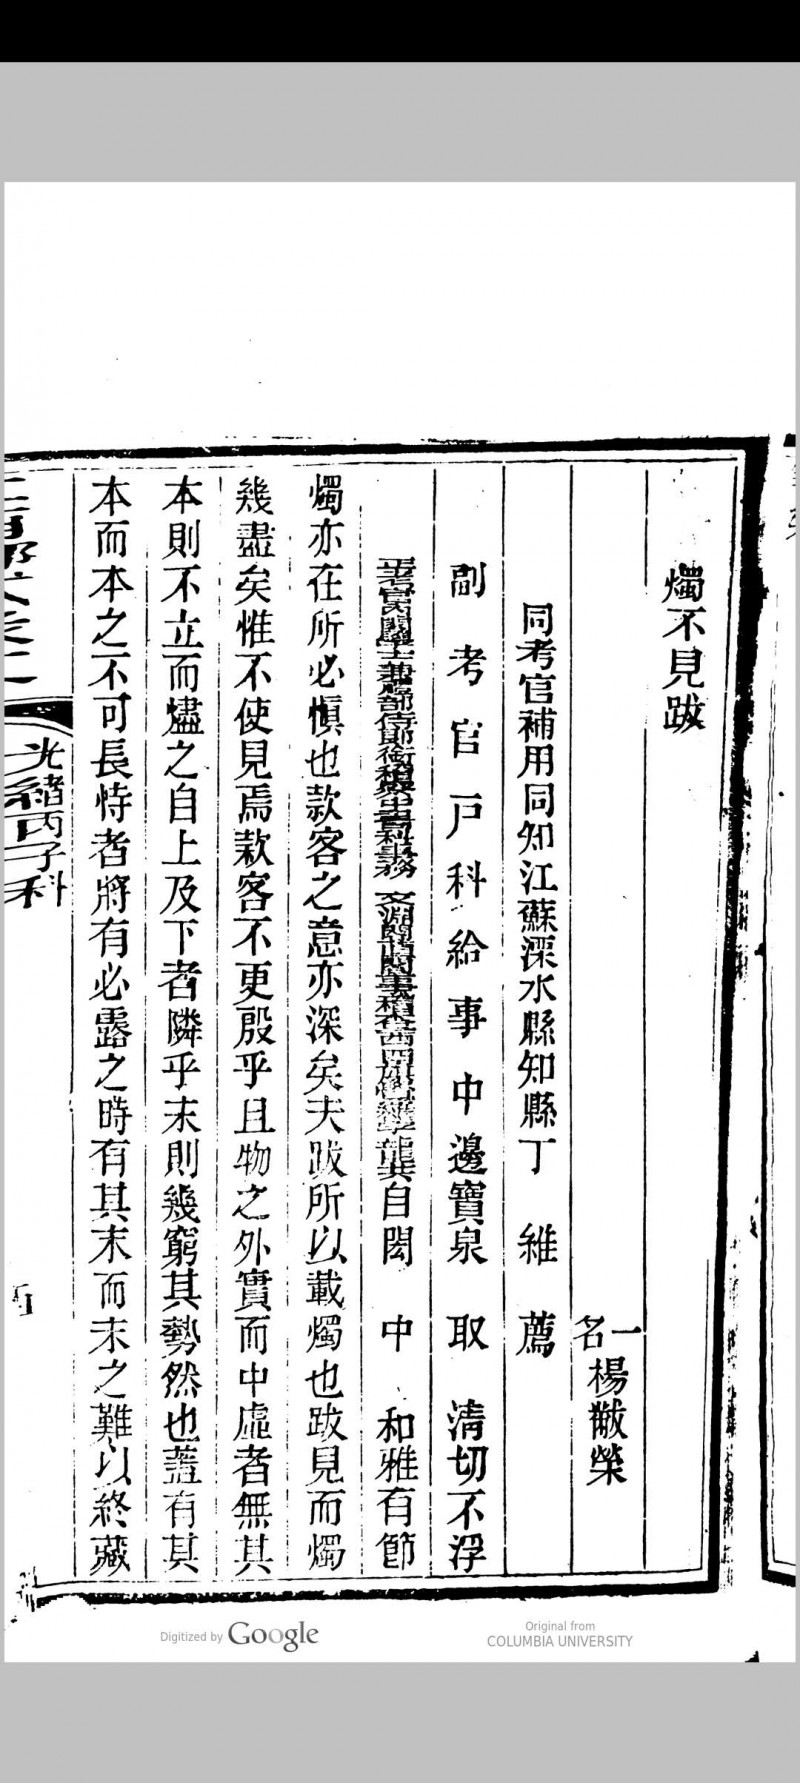 燭不見跋
一名
楊黻榮
同考官補用同知江蘇溧水縣知縣丁 維 薦
副考官戶科給事中邊寶泉 取 清切不浮
龔自閎 中 和雅有節
燭亦在所必慎也款客之意亦深矣夫跋所以載燭也跋見而燭
幾盡矣惟不使見焉款客不更殷乎且物之外實而中虛者無其
本則不立而燼之自上及下者隣乎末則幾窮其勢然也蓋有其
本而本之不可長恃者將有必露之時有其末而末之難以終藏
光緒丙子科
Digitized by Google
Original from
COLUMBIA UNIVERSITY